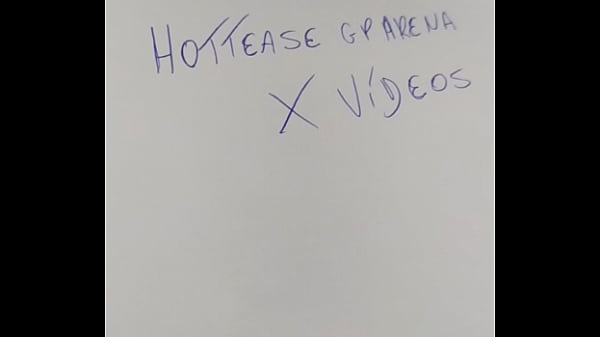 HOTTEASE GP ARENA
X VÍDEOS